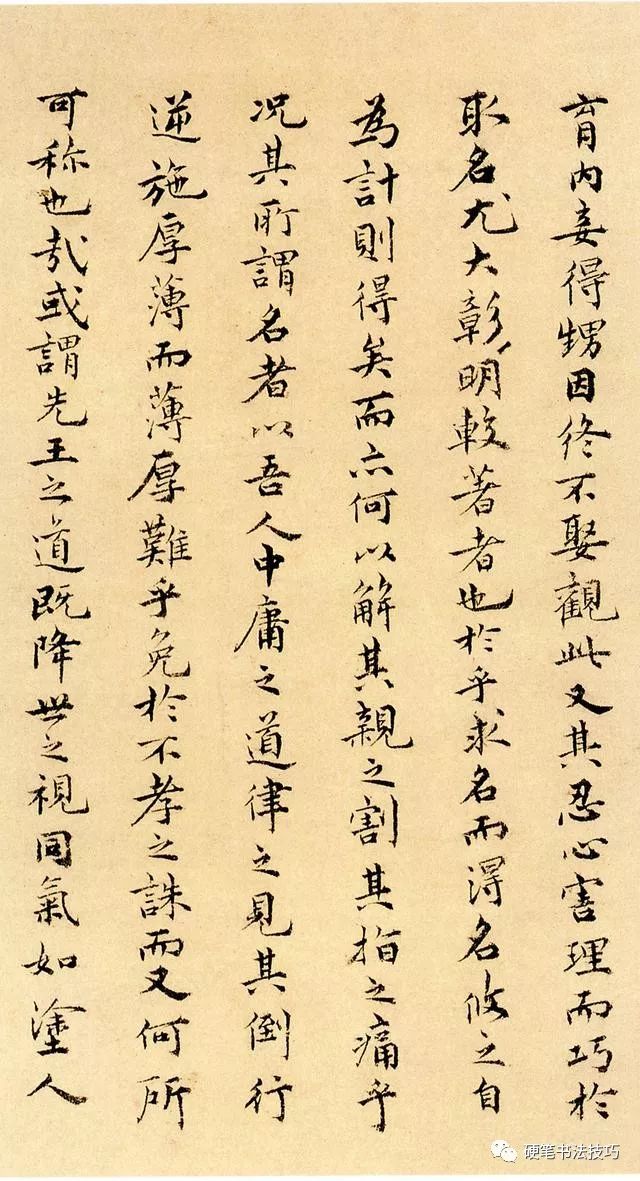 育內妾得甥因終不娶觀此又其忍心害理而巧於
取名尤大彰明較著者也於乎求名而得名攸之自
為計則得矣而亦何以解其親之割其指之痛乎
况其所謂名者以吾人中庸之道律之見其倒行
逆施厚薄而薄厚難乎免於不孝之誅而又何所
可称也哉或謂先王之道既降世之視同氣如塗人
硬笔书法技巧